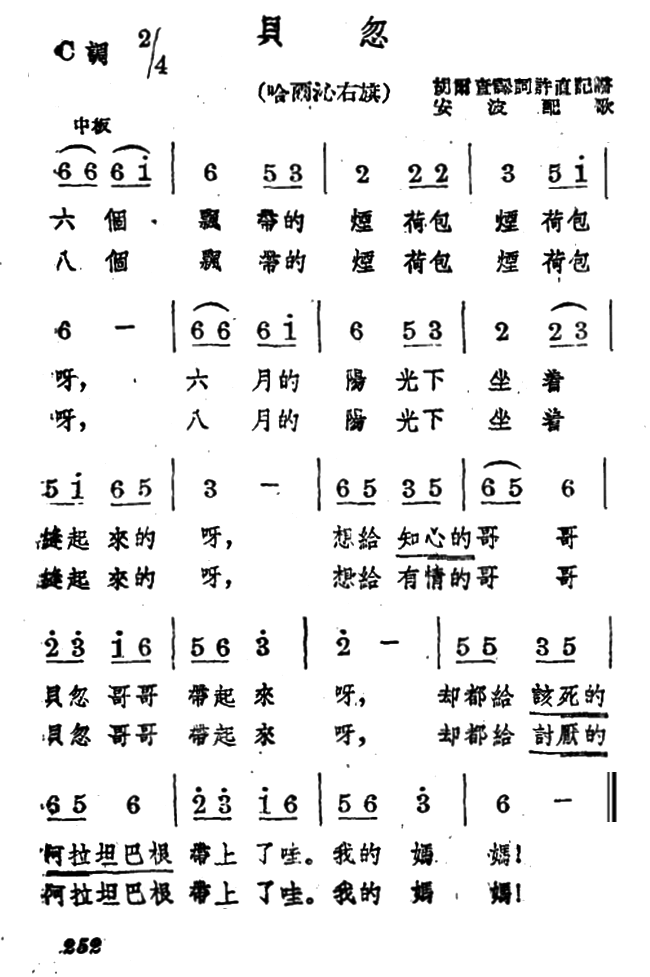 貝忽
C調 2/4
(哈爾沁右旗)
胡爾查譯詞許直記譜
安波配歌
中板
6 6 6 i | 6 5 3 | 2 2 2 | 3 5 i |
六個 飄帶的 煙荷包 煙荷包
八個 飄帶的 煙荷包 煙荷包
6 — | 6 6 6 i | 6 5 3 | 2 2 3 |
呀, 六月的 陽光下 坐着
呀, 八月的 陽光下 坐着
5 i 6 5 | 3 — | 6 5 3 5 | 6 5 6 |
縫起來的 呀, 想給知心的哥 哥
縫起來的 呀, 想給有情的哥 哥
2 3 i 6 | 5 6 3 | 2 — | 5 5 3 5 |
貝忽哥哥 帶起來 呀, 却都給該死的
貝忽哥哥 帶起來 呀, 却都給討厭的
6 5 6 | 2 3 i 6 | 5 6 3 | 6 — ‖
阿拉坦巴根 帶上了哇。我的媽 媽!
阿拉坦巴根 帶上了哇。我的媽 媽!
252